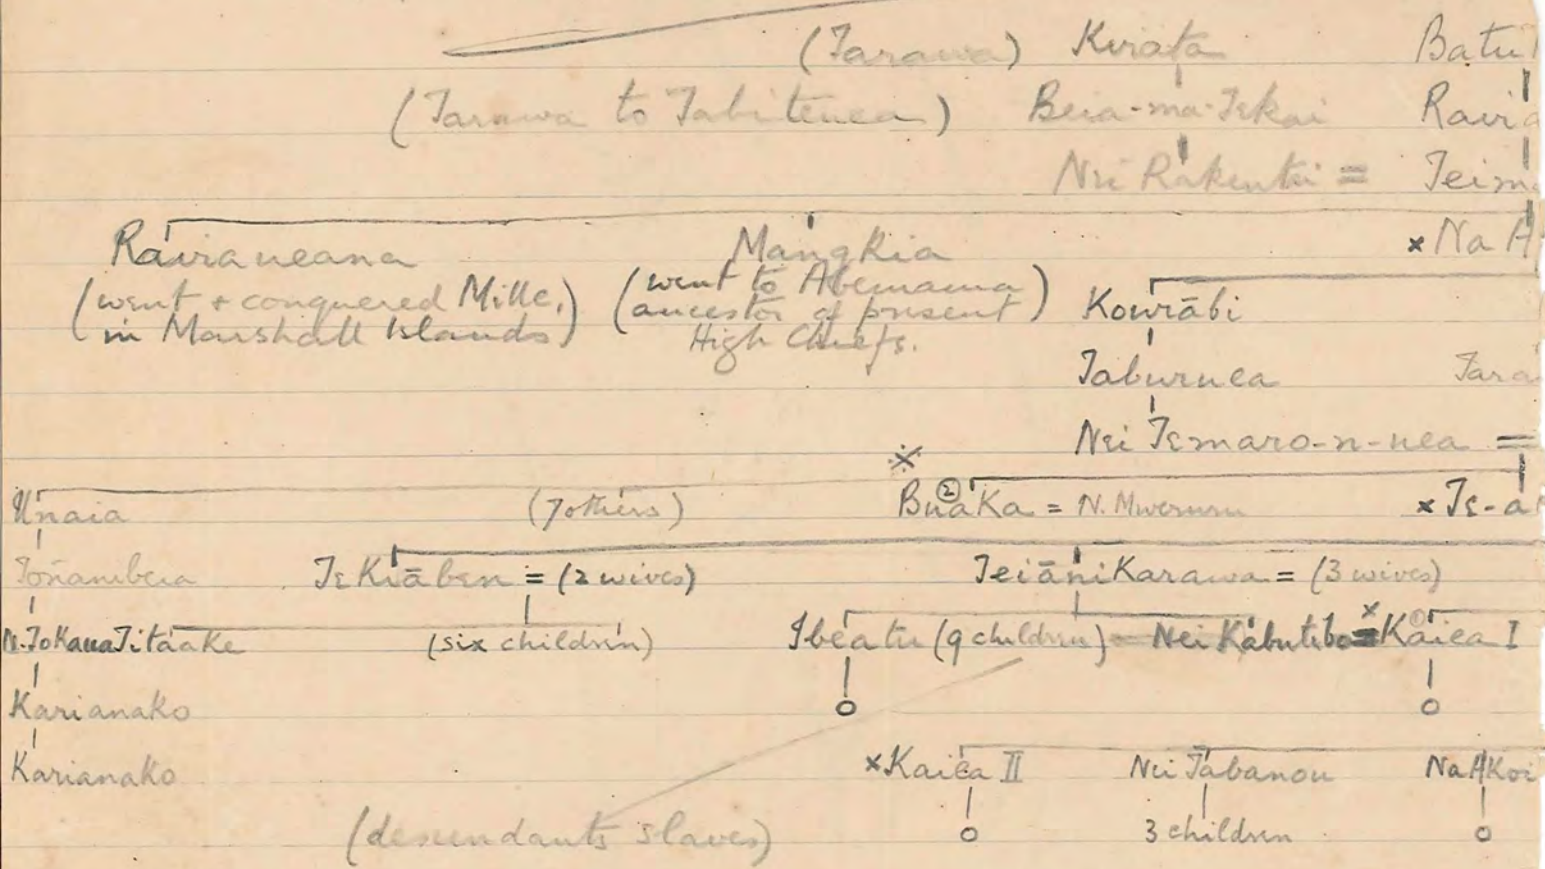 (Tarawa) Kirata Batu
(Tarawa to Tabiteuea) Beia-ma-Tekai
Nei Rakentai = Teim
Rairaueana Mangkia × Na A
(went + conquered Mille, in Marshall Islands)
(went to Abemama ancestor of present High Chiefs.
Kourābi
Taburuea Tara
Nei Temaro-n-uea =
Unaia (7 others) ② Buaka = N. Mweruru × Te-a
TeKiāben = (2 wives) TeiāniKarawa = (3 wives)
N. TokauaTitaake (six children) Ibeatu (9 children) Nei Kabutibo = × ① Kaiea I
Karianako o o
Karianako × Kaiea II Nei Tabanou Na AKoi
(descendants slaves) o 3 children o